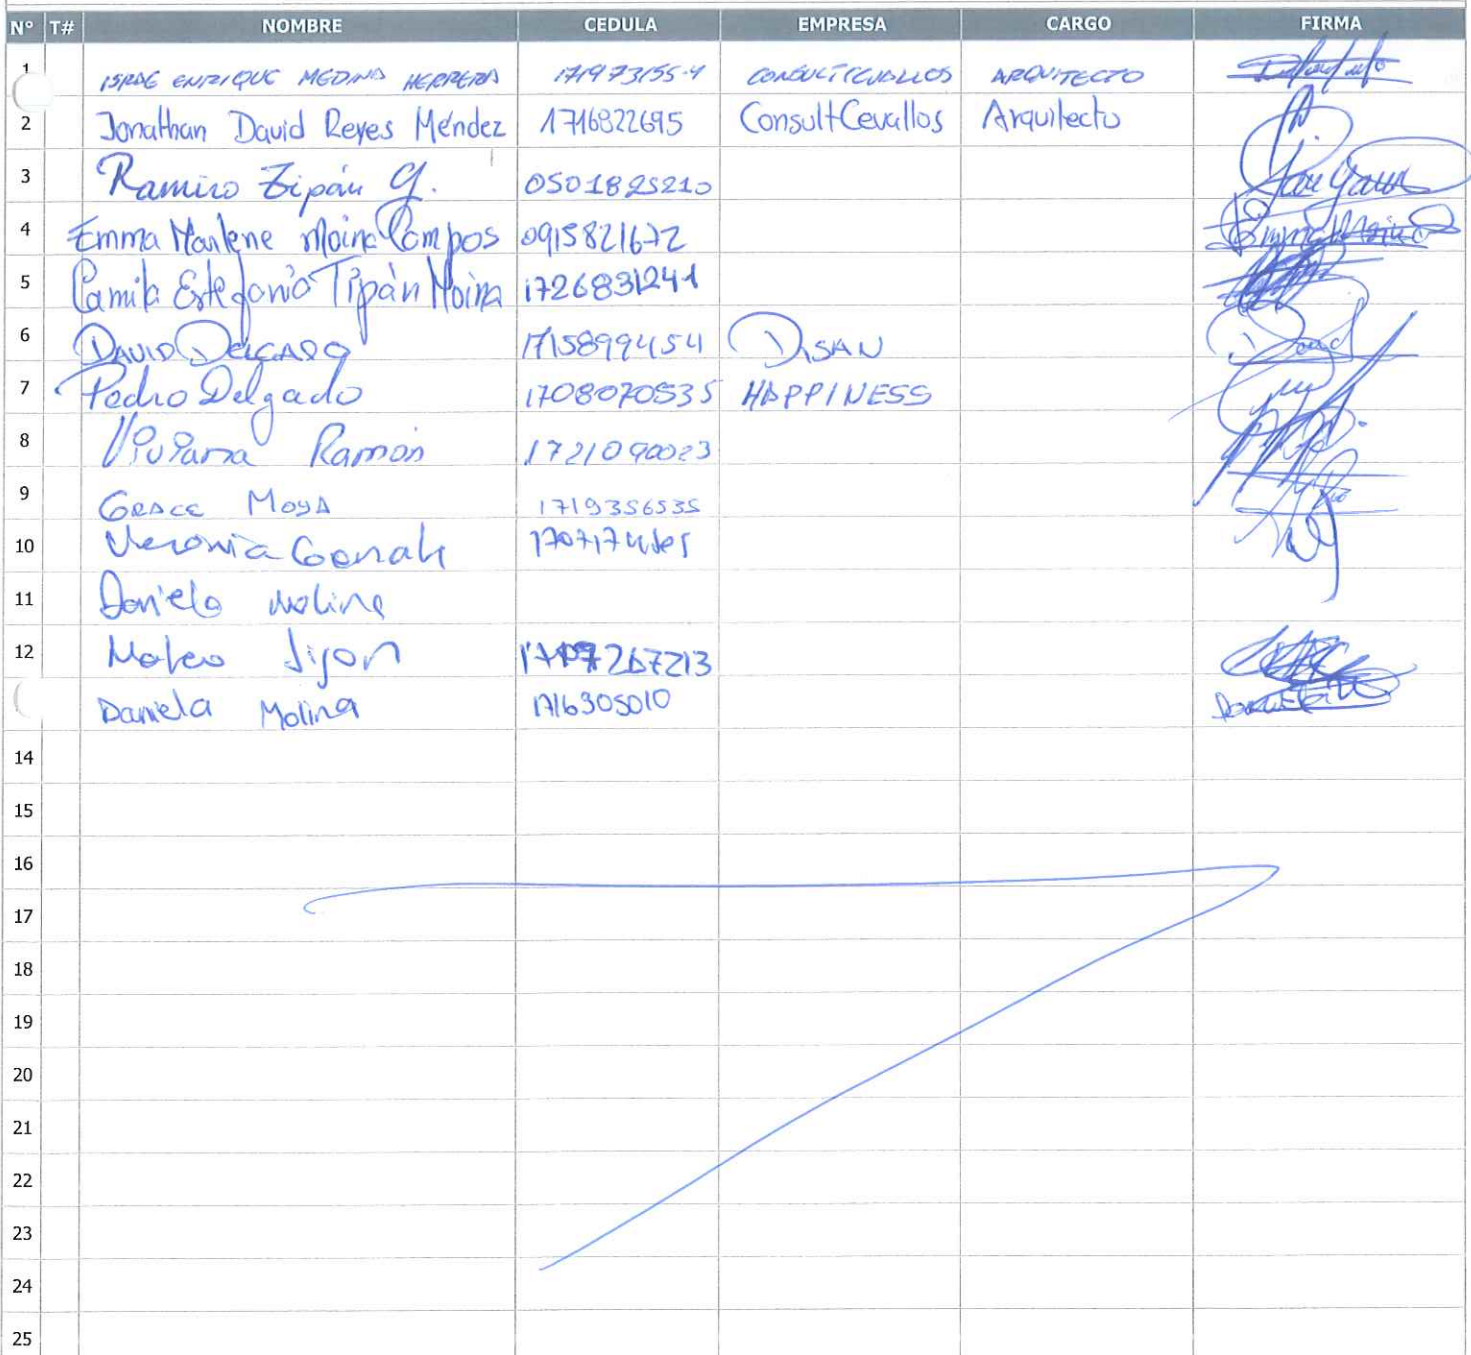 N° T# NOMBRE CEDULA EMPRESA CARGO FIRMA
1 ISRAE ENRIQUE MEDINA HERRERA 171973155-4 CONSULTCEVALLOS ARQUITECTO
2 Jonathan David Reyes Méndez 1716822695 ConsultCevallos Arquitecto
3 Ramiro Tipán G. 0501825210
4 Emma Marlene Moina Campos 0915821672
5 Camila Estefania Tipán Moina 1726831241
6 DAVID DELGADO 1715899454 DISAN
7 Pedro Delgado 1708070535 HAPPINESS
8 Viviana Ramón 1721090023
9 GRACE MOYA 1719356535
10
11 Daniela Molina
12 Mateo Jijon
Daniela Molina 1716305010
14
15
16
17
18
19
20
21
22
23
24
25